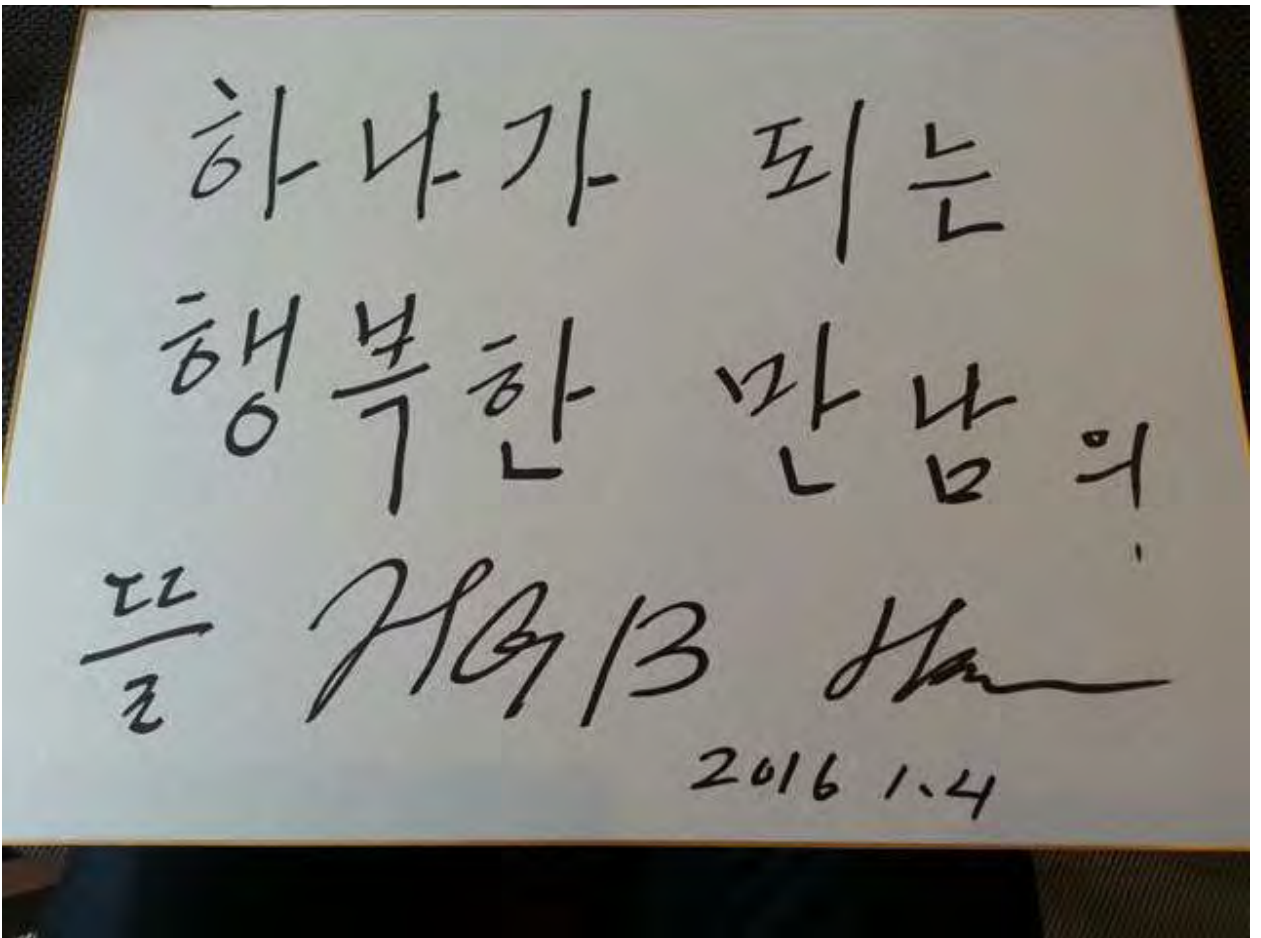 하나가 되는
행복한 만남의
뜰
2016 1.4